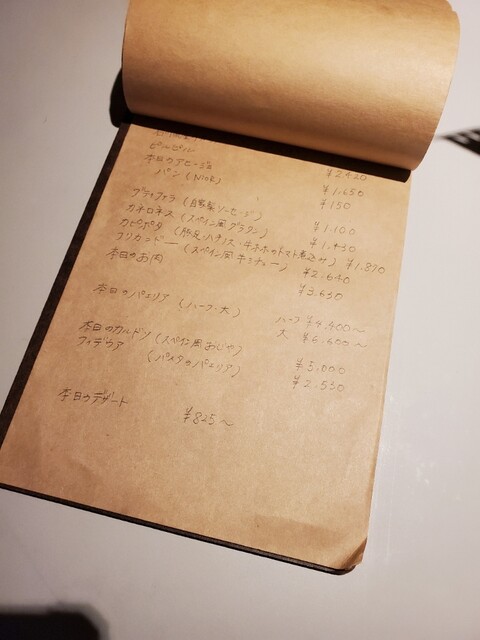 ピルピル ¥2,420
本日のアヒージョ ¥1,650
パン(Nick) ¥150
ブティファラ(自家製ソーセージ) ¥1,100
カネロネス(スペイン風グラタン) ¥1,430
カピポタ(豚足・ハチノス・牛ホホのトマト煮込み) ¥1,870
フリカンドー(スペイン風牛シチュー) ¥2,640
本日のお肉 ¥3,630
本日のパエリア(ハーフ・大) ハーフ ¥4,400〜
大 ¥6,600〜
本日のカルドソ(スペイン風おじや) ¥5,000
フィデウア(パスタのパエリア) ¥2,530
本日のデザート ¥825〜